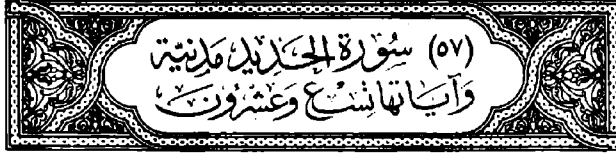 (٥٧) سُورَة الحَدِيد مَدَنِيَّة
وَآيَاتُهَا تِسْع وَعِشْرُونَ